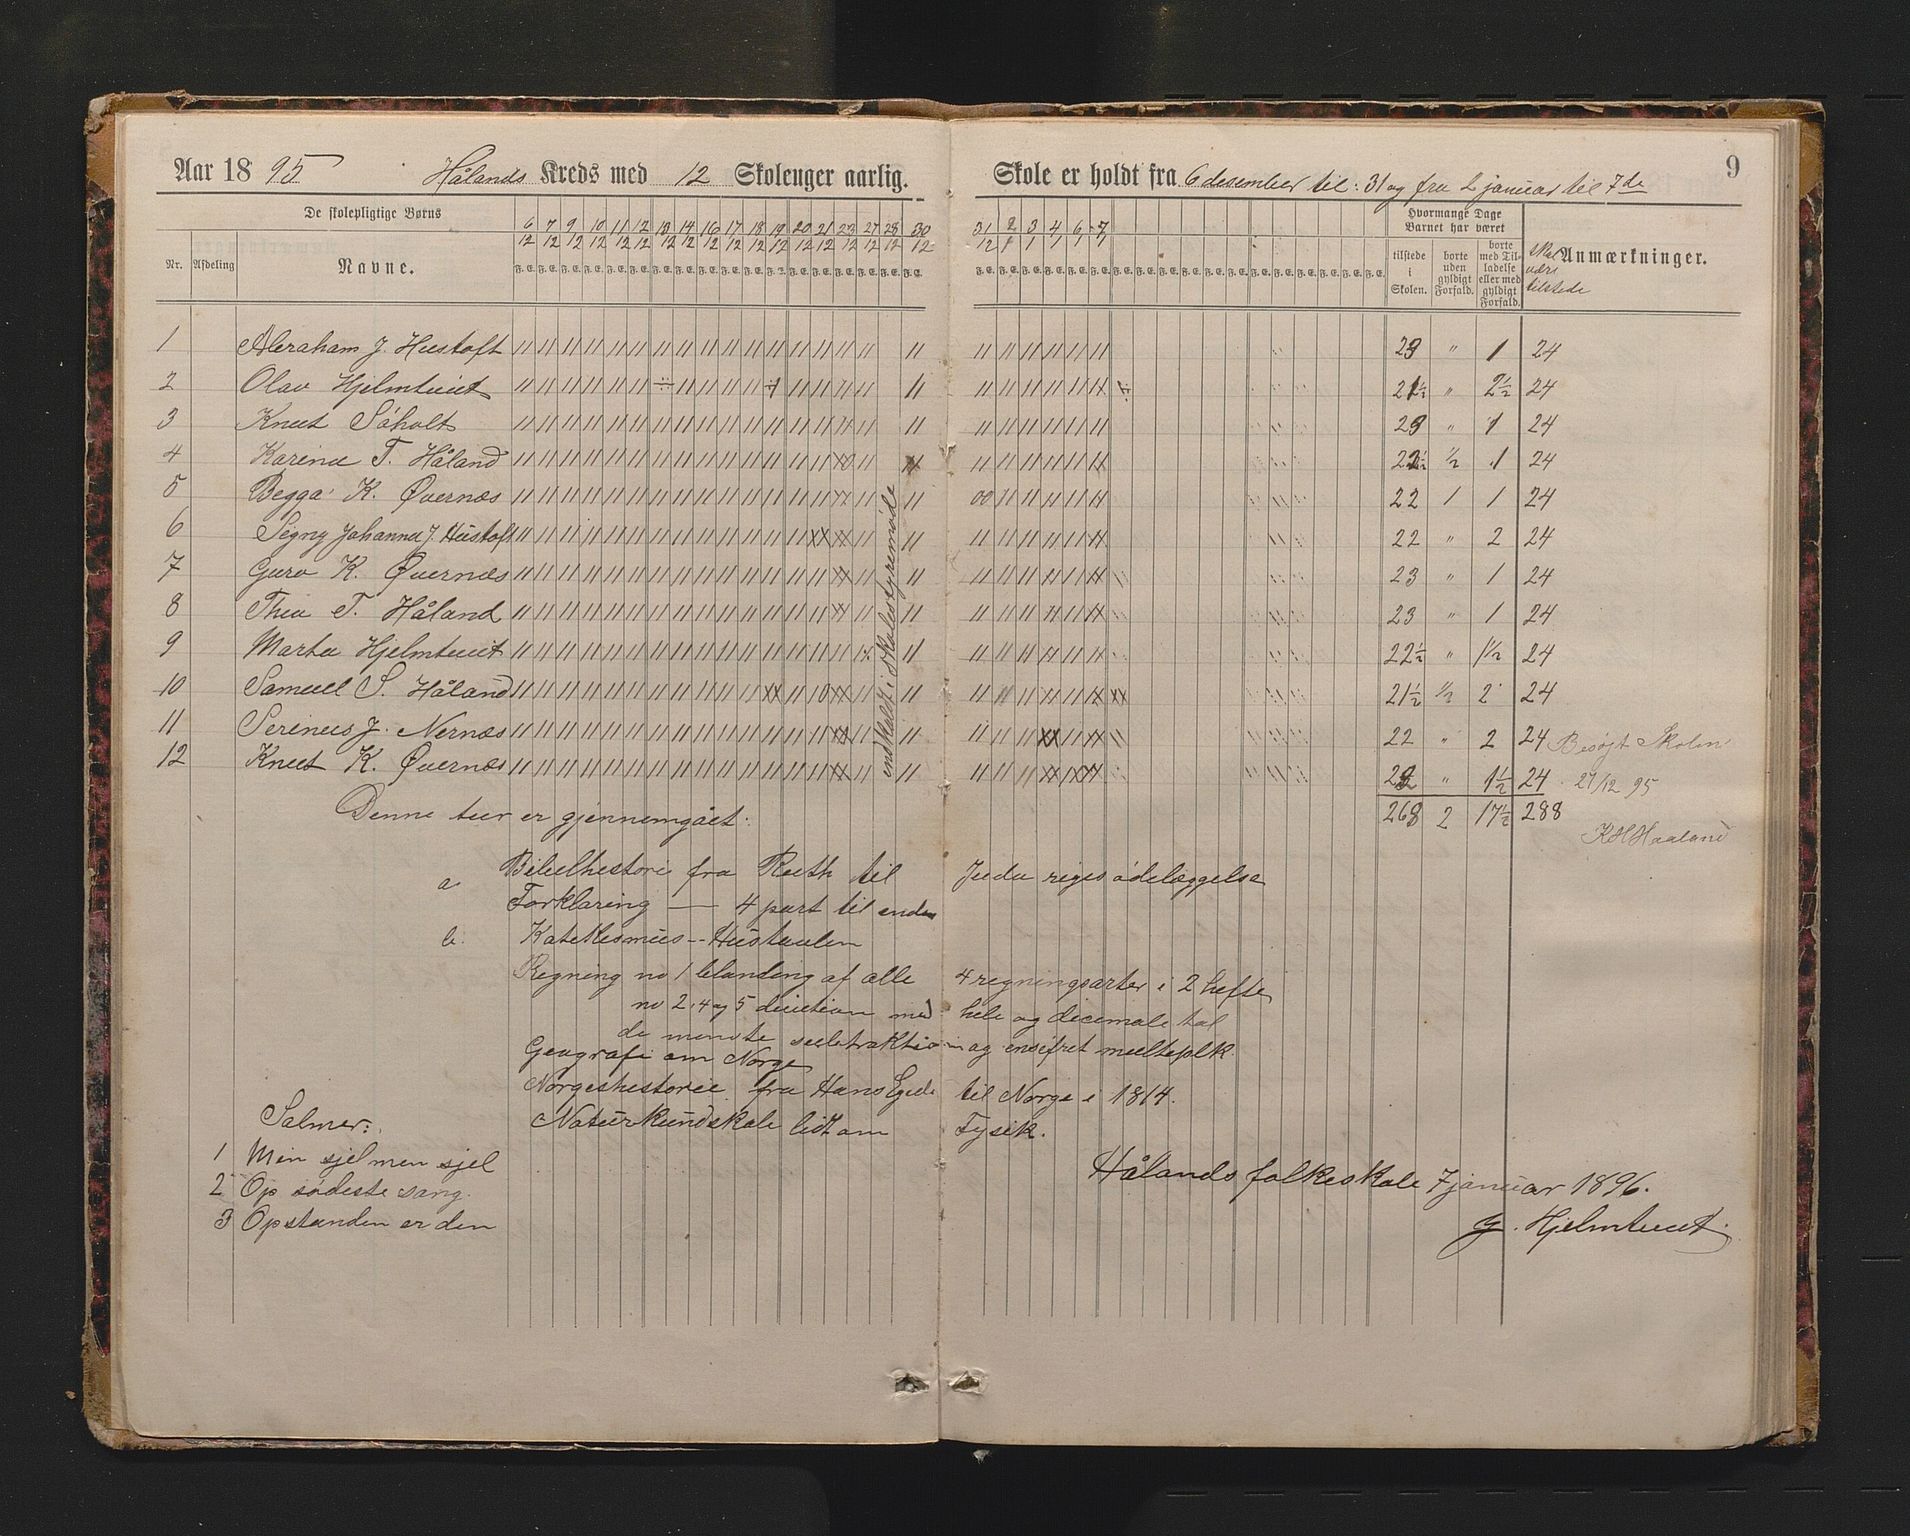 Aar 1895 Hålands Kreds med 12 Skolenger aarlig. Skole er holdt fra 6 desember til: 31 og fra 2 januar til 7de 9
De skolepligtige Børns
Nr. Afdeling Navne.
6/12 7/12 9/12 10/12 11/12 12/12 13/12 14/12 16/12 17/12 18/12 19/12 20/12 21/12 23/12 27/12 28/12 30/12 31/12 2/1 3/1 4/1 6/1 7/1
F. E.
Hvormange Dage Barnet har været
tilstede i Skolen.
borte uden gyldigt Forfald.
borte med Tilladelse eller med gyldigt Forfald.
Skal være tilstede
Anmærkninger.
1 Abraham J. Hustoft 23 " 1 24
2 Olav Hjelmtveit 21½ " 2½ 24
3 Knut Söholt 23 " 1 24
4 Karina T. Håland 22½ ½ 1 24
5 Begga K. Øvernæs 22 1 1 24
6 Signy Johanna J. Hustoft 22 " 2 24
7 Guro K. Øvernæs 23 " 1 24
8 Thea T. Håland 23 " 1 24
9 Marta Hjelmtveit 22½ " 1½ 24
10 Samuel S. Håland 21½ ½ 2 24
11 Serinus J. Nernæs 22 " 2 24 Besøgt Skolen
12 Knut K. Øvernæs 22 " 1½ 24 27/12 95
268 2 17½ 288
KHHaaland
indkaldt i skolestyremøde
Denne tur er gjennemgået:
a Bibelhestorie fra Ruth til Juda riges ødelæggelse
Forklaring — 4 part til enden
b. Katekismus -- Hustavlen
Regning no 1 blanding af alle 4 regningsarter i 2 hefte
no 2, 4 og 5 divition med hele og decimale tal
de mindste subtraktion og ensifret multeplk.
Geografi om Norge
Norgeshestorie fra Hans Egede til Norge i 1814.
Naturkundskab lidt om Fysik.
Salmer:
1 Min sjel men sjel
2 Op södeste sang.
3 Opstanden er den
Hålands folkeskole 7 januar 1896.
G. Hjelmtveit.